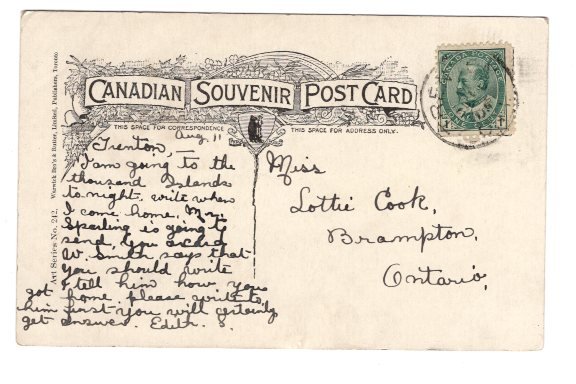 CANADIAN SOUVENIR POST CARD
THIS SPACE FOR CORRESPONDENCE
THIS SPACE FOR ADDRESS ONLY.
Art Series No. 242. Warwick Bro's & Rutter, Limited, Publishers, Toronto
Trenton, Aug. 11
I am going to the
thousand Islands
to night. write when
I come home. Mr.
Sparling is going to
send you a card
W. Smith says that
you should write
& tell him how you
got home please write to
him first you will certainly
get answer. Edith. S.
Miss
Lottie Cook,
Brampton,
Ontario,